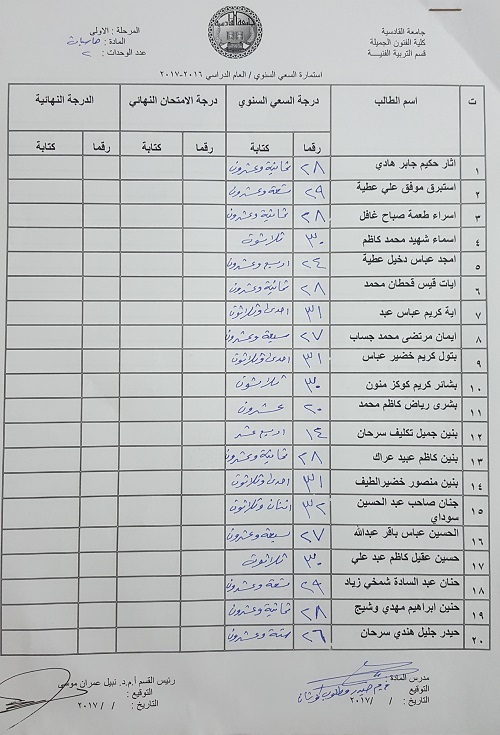 جامعة القادسية
كلية الفنون الجميلة
قسم التربية الفنية
المرحلة : الاولى
المادة : حاسبات
عدد الوحدات : ٢
استمارة السعي السنوي / العام الدراسي ٢٠١٦-٢٠١٧
ت اسم الطالب درجة السعي السنوي درجة الامتحان النهائي الدرجة النهائية
رقما كتابة رقما كتابة رقما كتابة
١ اثار حكيم جابر هادي ٢٨ ثمانية وعشرون
٢ استبرق موفق علي عطية ٢٩ تسعة وعشرون
٣ اسراء طعمة صباح غافل ٢٨ ثمانية وعشرون
٤ اسماء شهيد محمد كاظم ٣٠ ثلاثون
٥ امجد عباس دخيل عطية ٢٤ اربع وعشرون
٦ ايات قيس قحطان محمد ٢٨ ثمانية وعشرون
٧ اية كريم عباس عبد ٣١ احدى وثلاثون
٨ ايمان مرتضى محمد جساب ٢٧ سبعة وعشرون
٩ بتول كريم خضير عباس ٣١ احدى وثلاثون
١٠ بشائر كريم كوكز منون ٣٠ ثلاثون
١١ بشرى رياض كاظم محمد ٢٠ عشرون
١٢ بنين جميل تكليف سرحان ١٤ اربع عشر
١٣ بنين كاظم عبيد عراك ٢٨ ثمانية وعشرون
١٤ بنين منصور خضيرالطيف ٣١ احدى وثلاثون
١٥ جنان صاحب عبد الحسين سوداي ٣٢ اثنان وثلاثون
١٦ الحسين عباس باقر عبدالله ٢٧ سبعة وعشرون
١٧ حسين عقيل كاظم عبد علي ٣٠ ثلاثون
١٨ حنان عبد السادة شمخي زياد ٢٩ تسعة وعشرون
١٩ حنين ابراهيم مهدي وشيح ٢٨ ثمانية وعشرون
٢٠ حيدر جليل هندي سرحان ٢٦ ستة وعشرون
مدرس المادة :
التوقيع
التاريخ : / / ٢٠١٧
رئيس القسم أ.م.د. نبيل عمران موسى
التوقيع :
التاريخ : / / ٢٠١٧